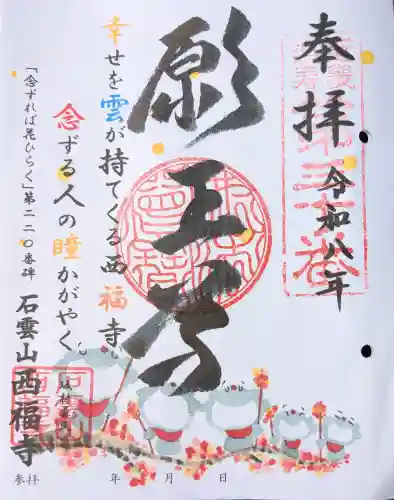 奉拝
令和八年
願王尊
幸せを雲が持てくる西福寺
念ずる人の瞳かがやく
「念ずれば花ひらく」第二二〇番碑
石雲山西福寺
参拝 年 月 日